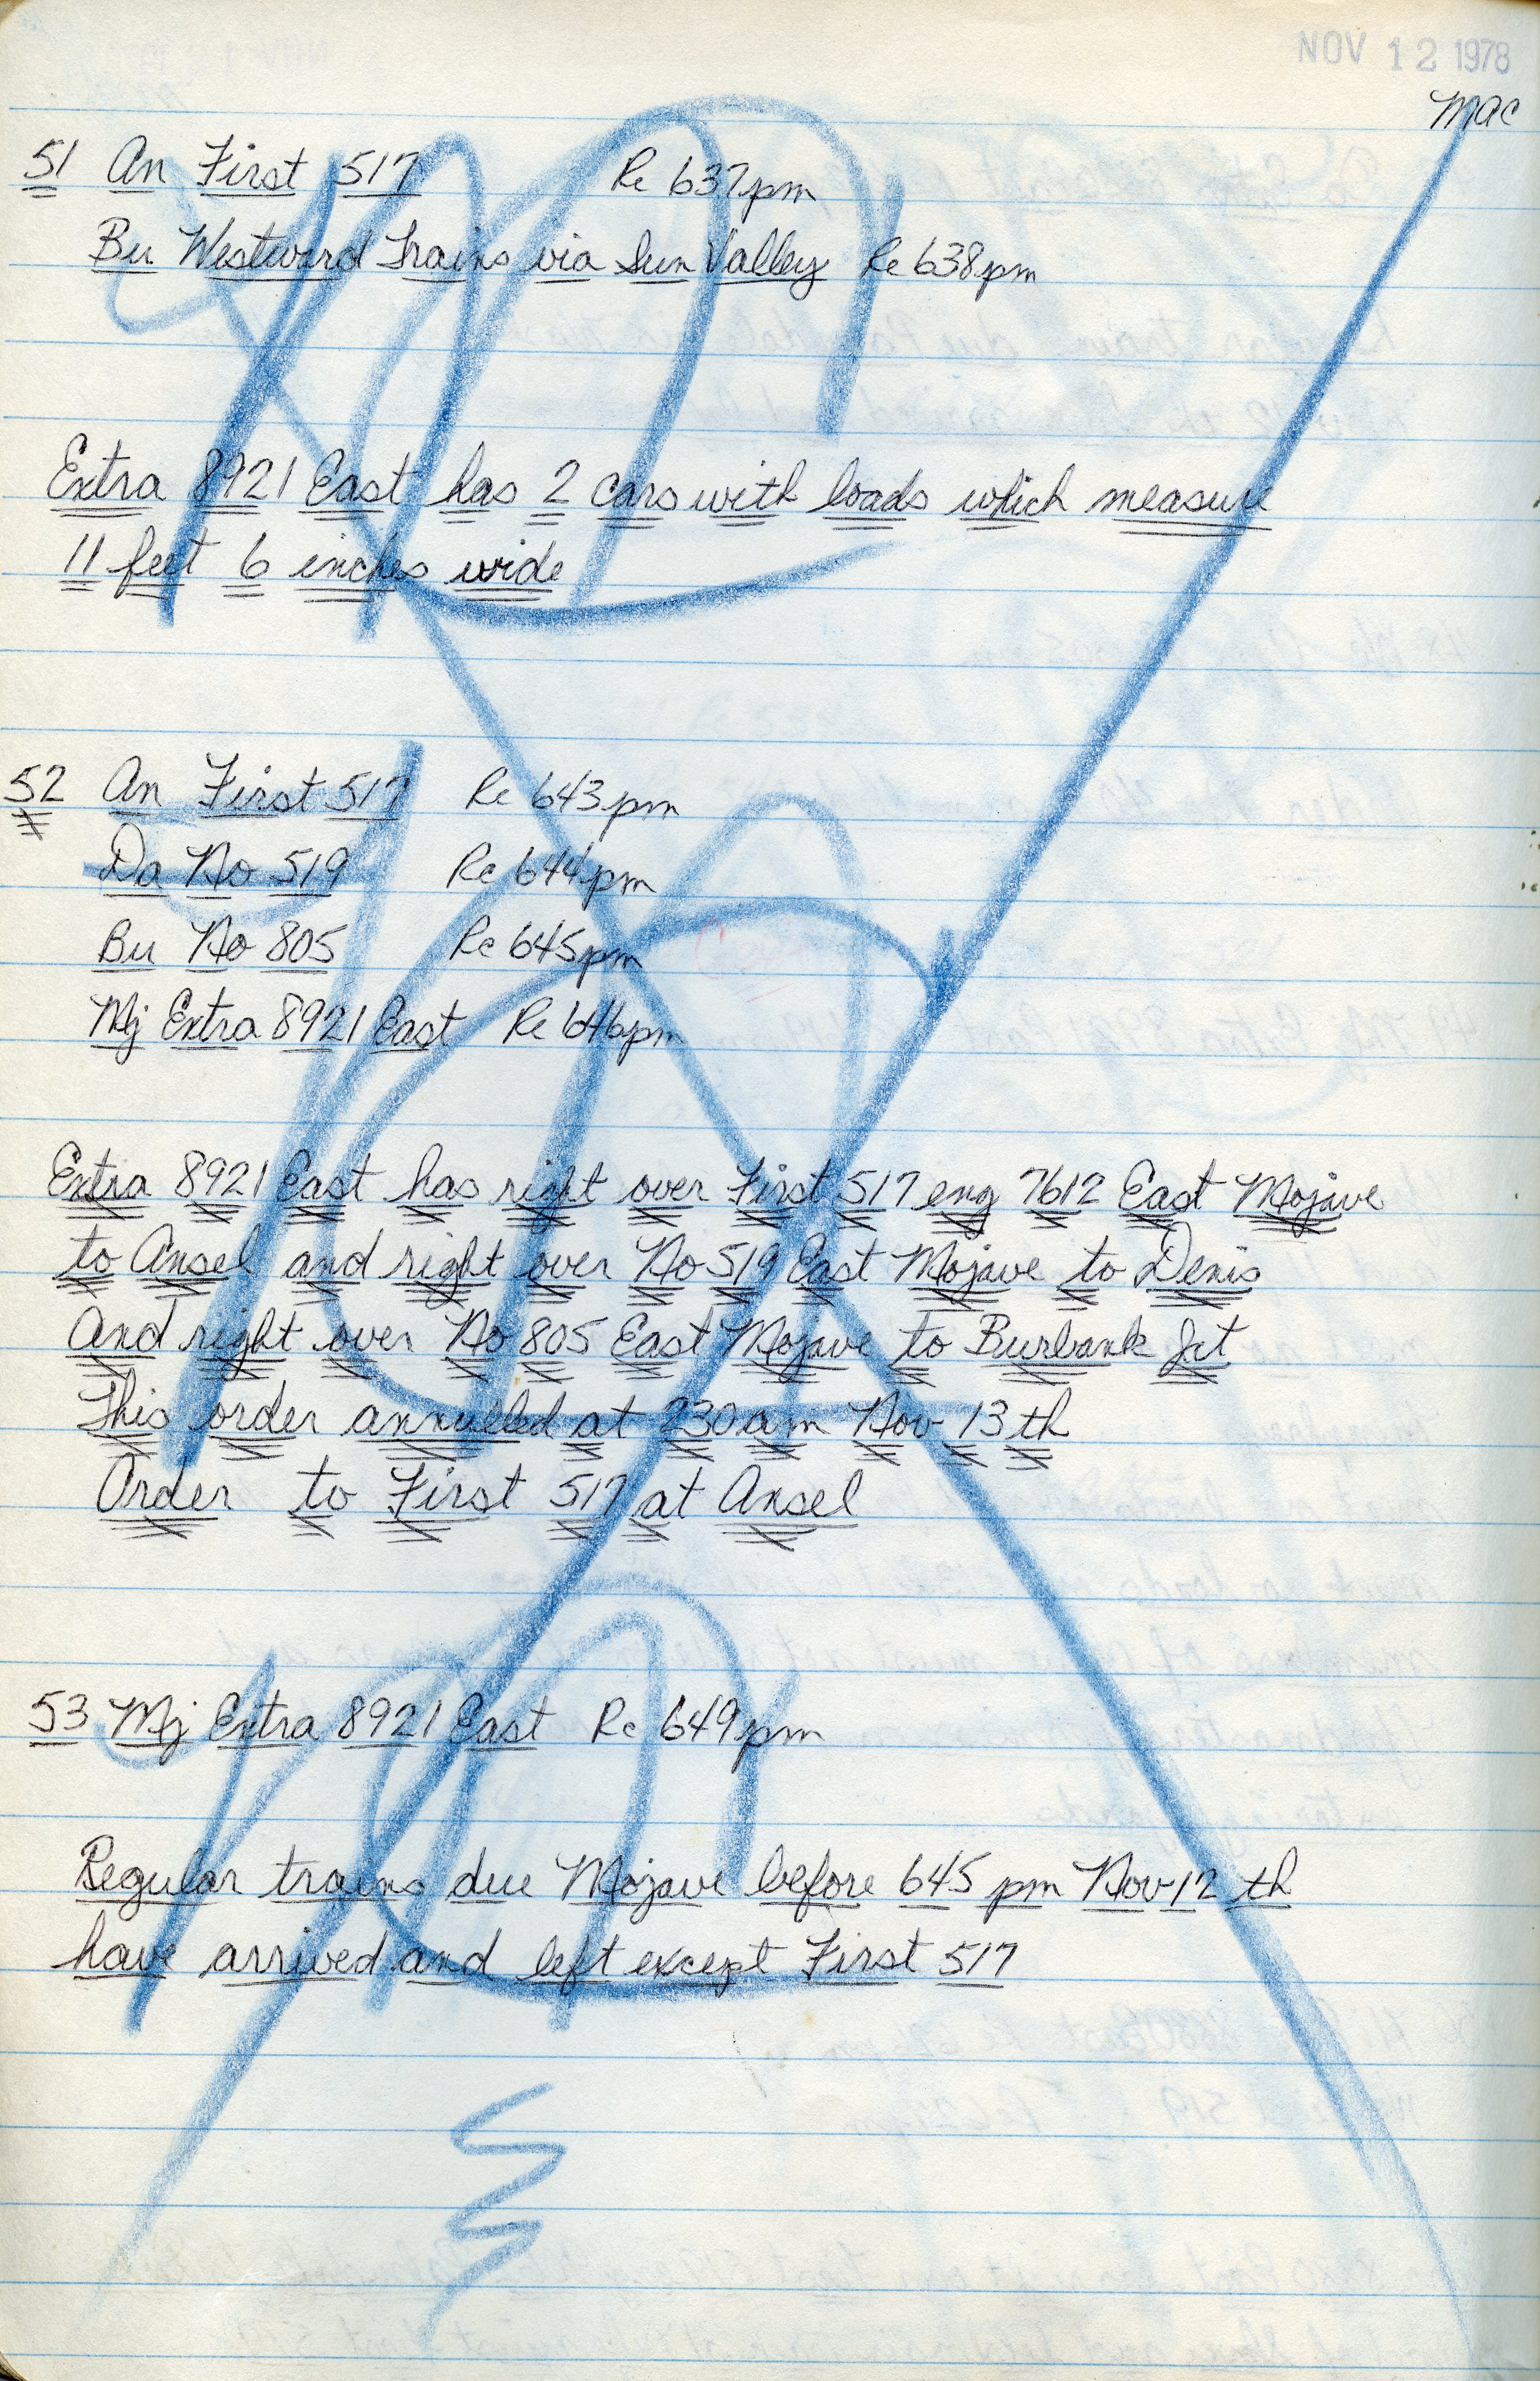 NOV 12 1978
mac
51 An First 517 Re 637pm
Bu Westward Trains via Sun Valley Re 638pm
Extra 8921 East has 2 cars with loads which measure
11 feet 6 inches wide
52 An First 517 Re 643pm
Da No 519 Re 644pm
Bu No 805 Re 645pm
Mj Extra 8921 East Re 646pm
Extra 8921 East has right over First 517 eng 7612 East Mojave
to Ansel and right over No 519 East Mojave to Denis
And right over No 805 East Mojave to Burbank Jct
This order annulled at 230am Nov 13th
Order to First 517 at Ansel
53 Mj Extra 8921 East Re 649pm
Regular trains due Mojave before 645 pm Nov 12 th
have arrived and left except First 517